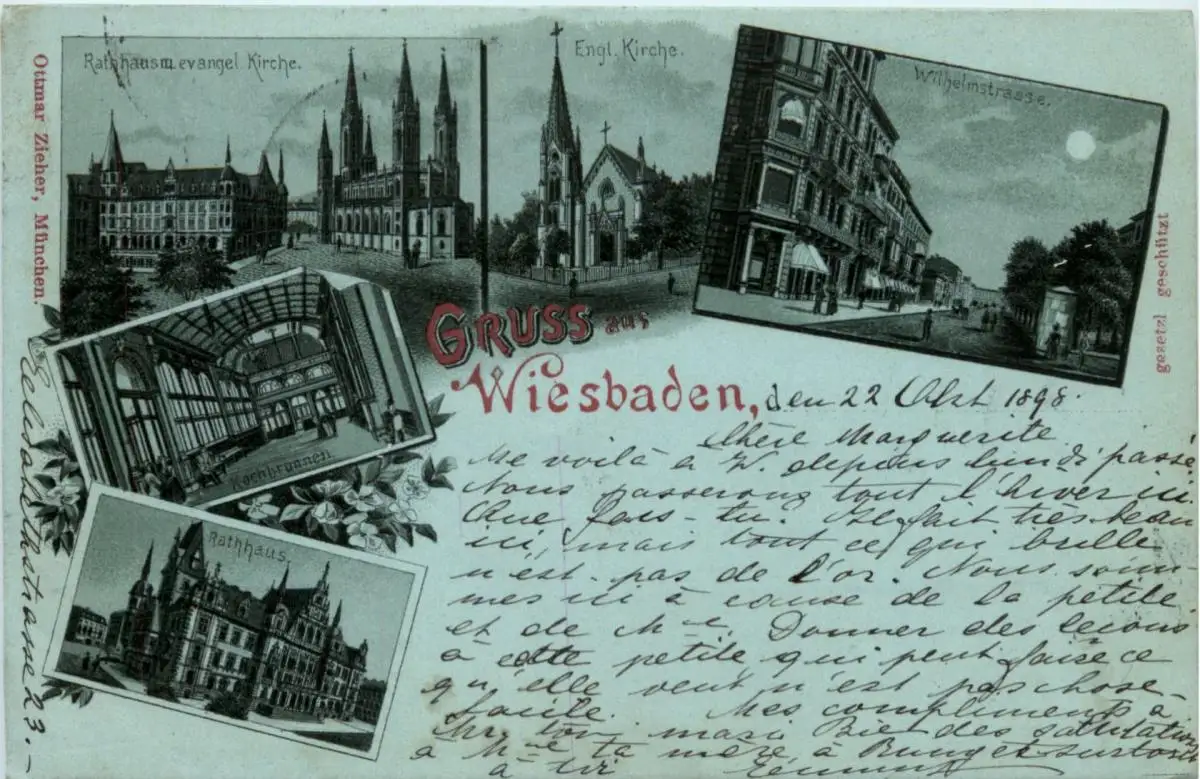 Rathhaus u. evangel Kirche.
Engl. Kirche.
Wilhelmstrasse.
Ottmar Zieher, München.
gesetzl geschützt
Kochbrunnen.
Rathhaus
GRUSS aus
Wiesbaden, den 22 Okt 1898.
Chère Marguerite
Me voilà à W. depuis lundi passé
Nous passerons tout l'hiver ici
Que fais-tu? Il fait très beau
ici, mais tout ce qui brille
n'est pas de l'or. Nous som
mes ici à cause de la petite
et de Me. Donner des leçons
à cette petite qui peut faire ce
qu'elle veut n'est pas chose
facile. Mes compliments à
Mr. ton mari Bien des salutations
à Me ta mère, à surtout
à toi
Elisabethstrasse 23.-